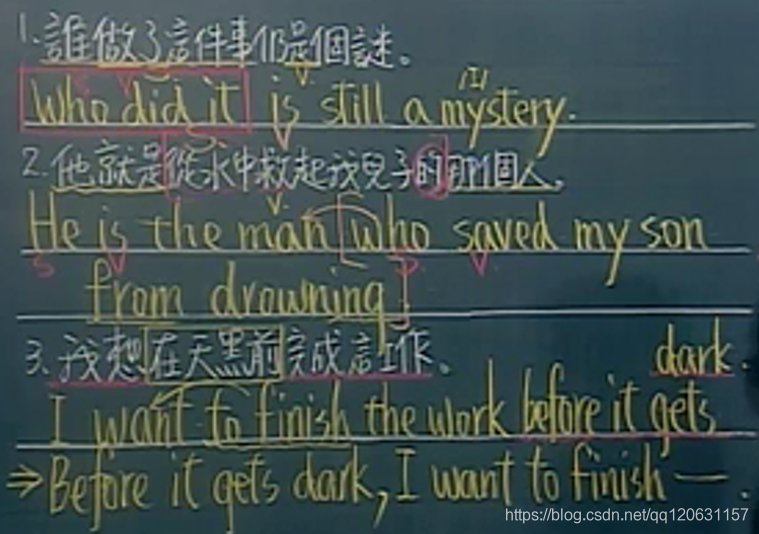 1.誰做了這件事仍是個謎。
Who did it is still a mystery.
2.他就是從水中救起我兒子的那個人。
He is the man who saved my son
from drowning
3.我想在天黑前完成這工作。
dark.
I want to finish the work before it gets
⇒Before it gets dark, I want to finish — .
https://blog.csdn.net/qq120631157